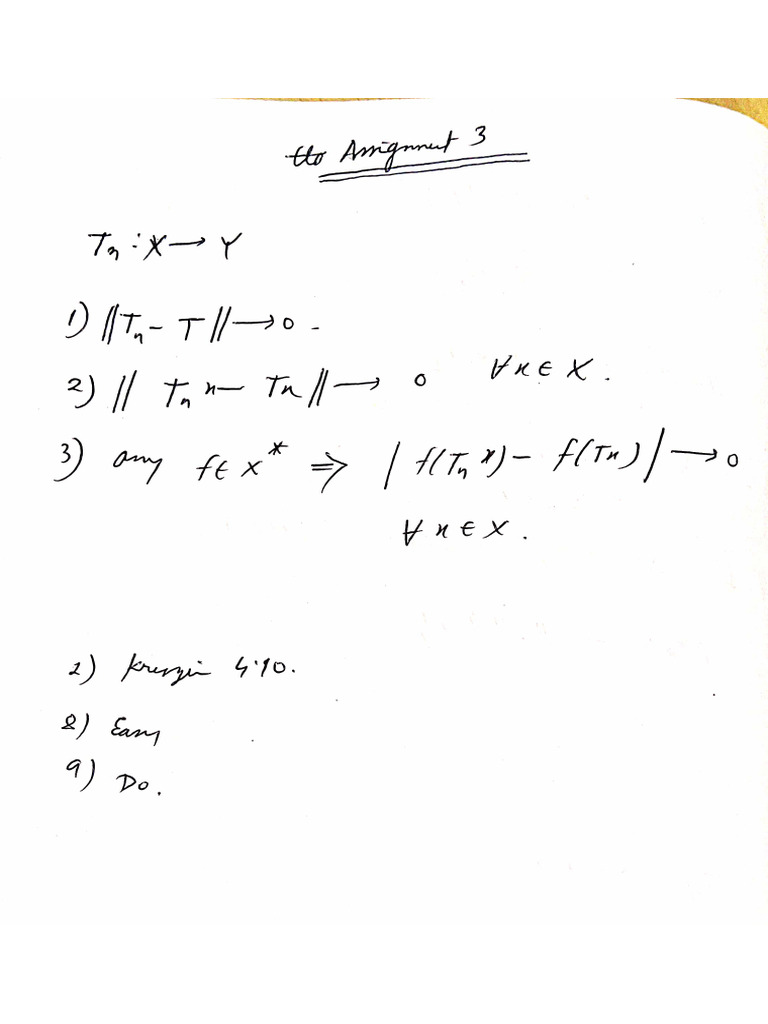 Assignment 3
Tn : X → Y
1) ||Tn - T|| → 0 .
2) || Tn x - Tx || → 0 ∀ x ∈ X .
3) any f ∈ X* ⇒ | f(Tn x) - f(Tx) | → 0
∀ x ∈ X .
2) 4.10.
8) Easy
9) Do.